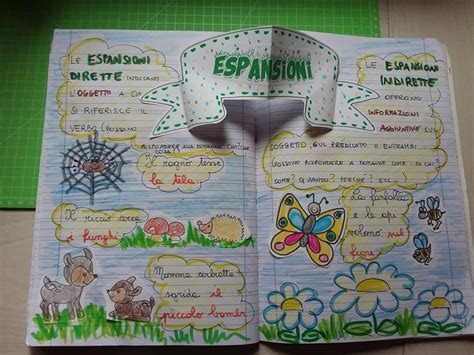 ESPANSIONI
LE ESPANSIONI
DIRETTE INDICANO
L'OGGETTO A CUI
SI RIFERISCE IL
VERBO (POSSONO
RISPONDERE ALLA DOMANDA CHI? CHE
COSA?)
Il ragno tesse
la tela
Il riccio cerca
i funghi
Mamma cerbiatta
sgrida il
piccolo bambi
LE ESPANSIONI
INDIRETTE
OFFRONO
INFORMAZIONI
AGGIUNTIVE SUL
SOGGETTO, SUL PREDICATO O ENTRAMBI
(POSSONO RISPONDERE A DOMANDE COME: DI CHI?
COME? QUANDO? PERCHÉ? ECC..)
La farfalla
e le api
volano sui
fiori